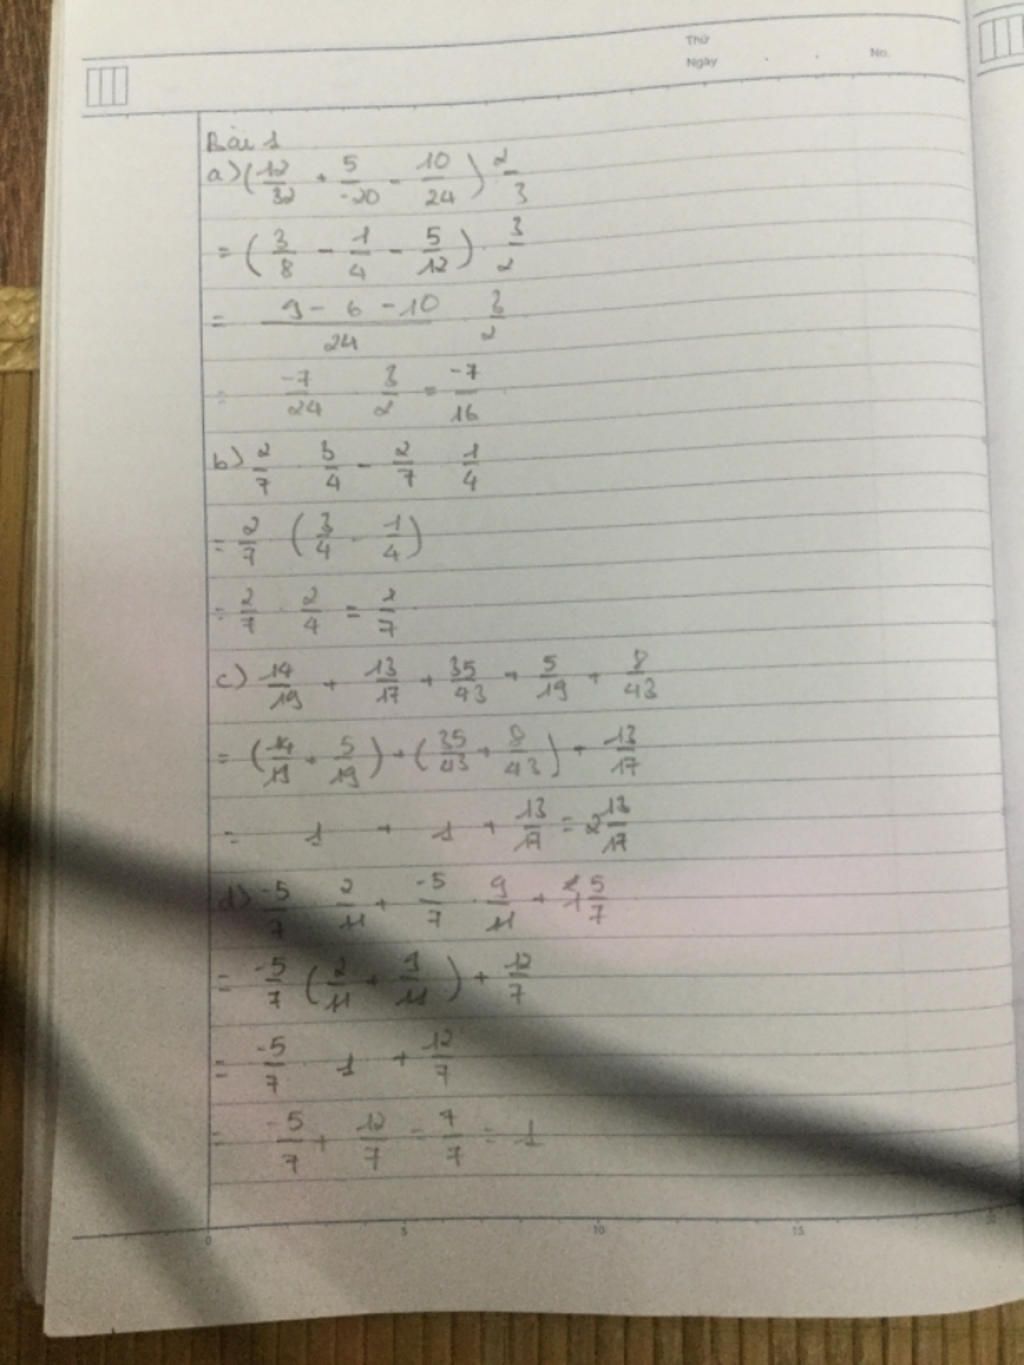 Thứ
Ngày No.
Bài 1
a) (12/32 + 5/-20 - 10/24) 2/3
= (3/8 - 1/4 - 5/12) . 3/2
= (9 - 6 - 10)/24 3/2
= -7/24 3/2 = -7/16
b) 2/7 . 3/4 - 2/7 1/4
= 2/7 (3/4 - 1/4)
= 2/7 . 2/4 = 1/7
c) 14/19 + 13/17 + 35/43 + 5/19 + 8/43
= (14/19 + 5/19) + (35/43 + 8/43) + 13/17
= 1 + 1 + 13/17 = 2 13/17
d) -5/7 2/11 + -5/7 . 9/11 + 1 5/7
= -5/7 (2/11 + 9/11) + 12/7
= -5/7 1 + 12/7
= -5/7 + 12/7 = 7/7 = 1
0 5 10 15